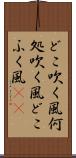 どこ吹く風何
処吹く風どこ
ふく風((